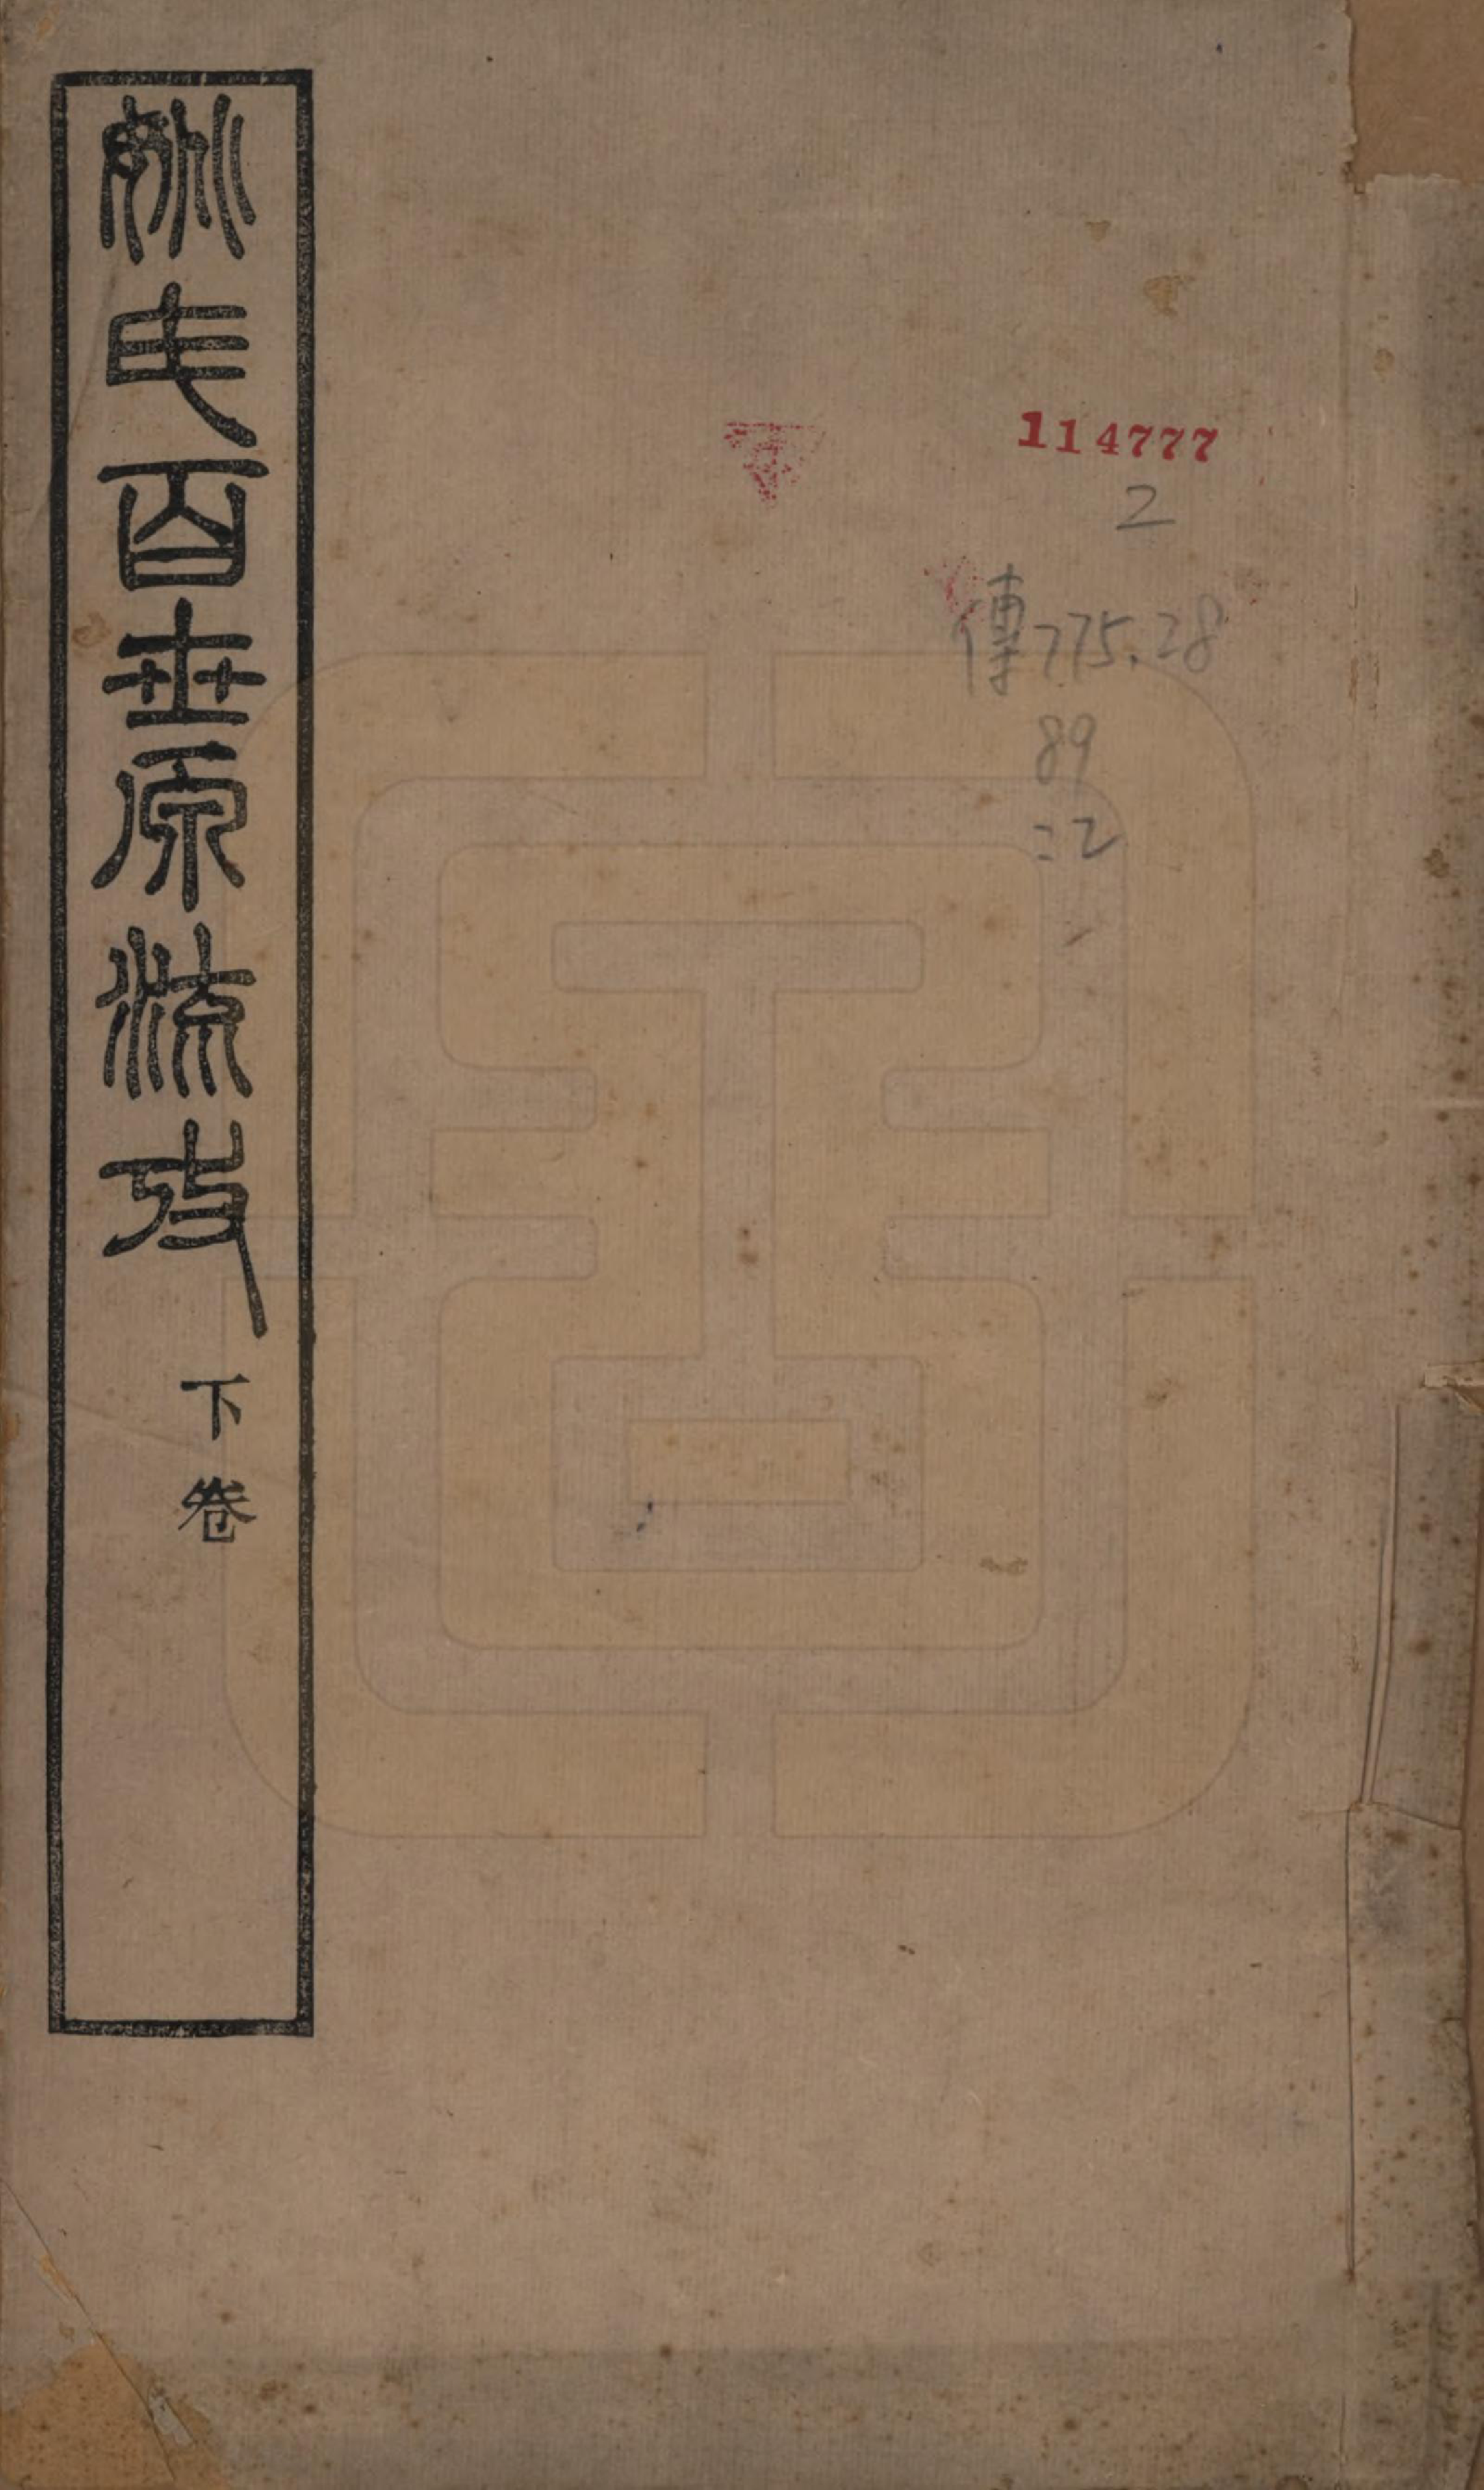 姚氏百世原流攷
下卷
114777
2
傳775.28
89
:2